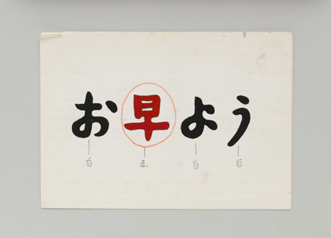 お早よう